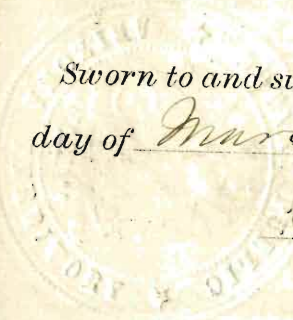 Sworn to and su
day of Mar